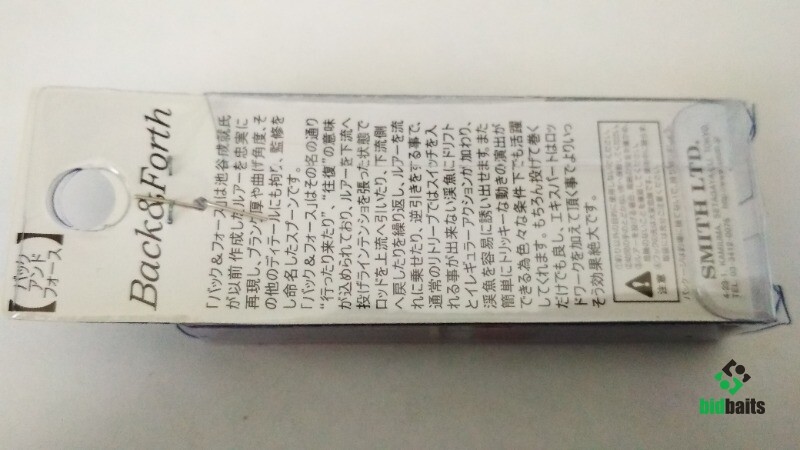 【バック
アンド
フォース】
Back&Forth
「バック&フォース」は池谷成就氏
が以前作成したルアーを忠実に
再現し、ブランク厚や曲げ角度、そ
の他のディテールにも拘り、監修を
し命名したスプーンです。
「バック&フォース」はその名の通り
“行ったり来たり”、“往復”の意味
が込められており、ルアーを下流へ
投げラインテンションを張った状態で
ロッドを上流へ引いたり、下流側
へ戻したりを繰り返し、ルアーを流
れに乗せたり、逆引きをする事で、
通常のリトリーブではスイッチを入
れる事が出来ない渓魚にドリフト
とイレギュラーアクションが加わり、
渓魚を容易に誘い出せます。また
簡単にトリッキーな動きの演出が
できる為色々な条件下でも活躍
してくれます。もちろん投げて巻く
だけでも良し、エキスパートはロッ
ドワークを加えて頂く事でよりいっ
そう効果絶大です。
注意
SMITH LTD.
bidbaits